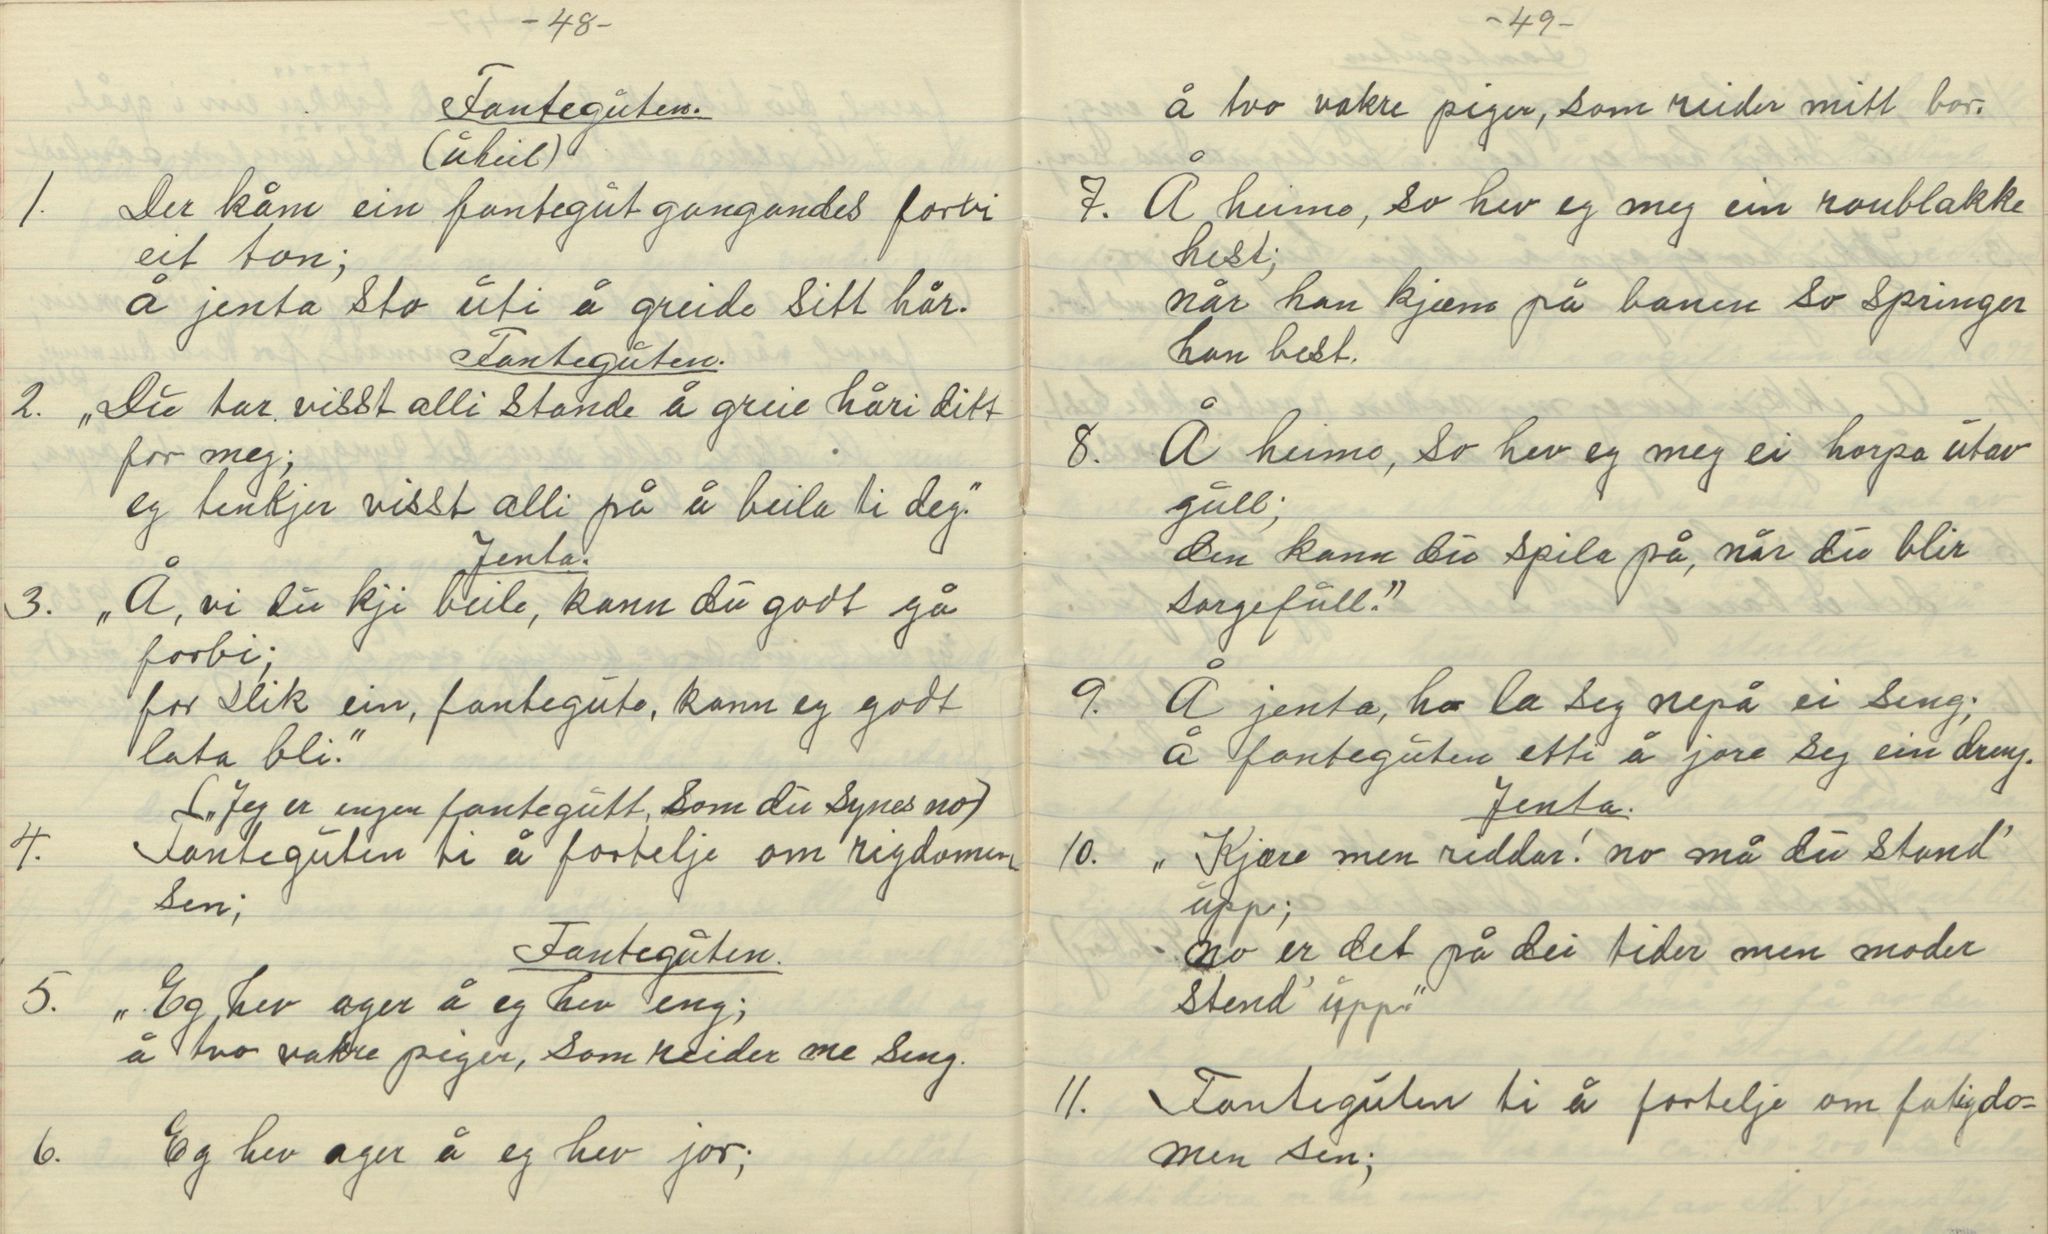 -48-
Fantegŭten.
(ŭheil)
1. Der kåm ein fantegŭt gangandes forbi
eit tan;
å jenta sto ŭti å greida sitt hår.
Fantegŭten.
2. „Dŭ tar visst alli stande å greie håri ditt
for meg;
eg tenkjer visst alli på å beila ti deg."
Jenta.
3. „Å, vi dŭ kji beile, kann dŭ godt gå
forbi;
for slik ein, fantegŭte, kann eg godt
lata bli."
(„Jeg er ingen fantegŭtt, som dŭ synes no)
4. Fantegŭten ti å fortelje om rigdomen
sen;
Fantegŭten.
5. „Eg hev ager å eg hev eng;
å tvo vakre piger, som reider me seng.
6. Eg hev ager å eg hev jor;
-49-
å tvo vakre piger, som reider mitt bor.
7. Å heima, so hev eg meg ein raublakke
hest;
når han kjæm på banen so springer
han best.
8. Å heima, so hev eg meg ei harpa ŭtav
gŭll;
den kann dŭ spila på, når dŭ blir
sorgefŭll."
9. Å jenta, ho la seg nepå ei seng;
å fantegŭten etti å jore seg ein dreng.
Jenta.
10. „Kjære men riddar! no må dŭ stand'
ŭpp;
no er det på dei tider men moder
stend' ŭpp."
11. Fantegŭten ti å fortelje om fatigdo=
men sen;